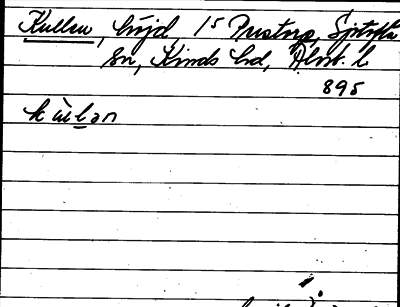 Kullen, höjd, 15 Prustorp, Sjötofta
sn, Kinds hd, Älvsb. l
895
kùlan